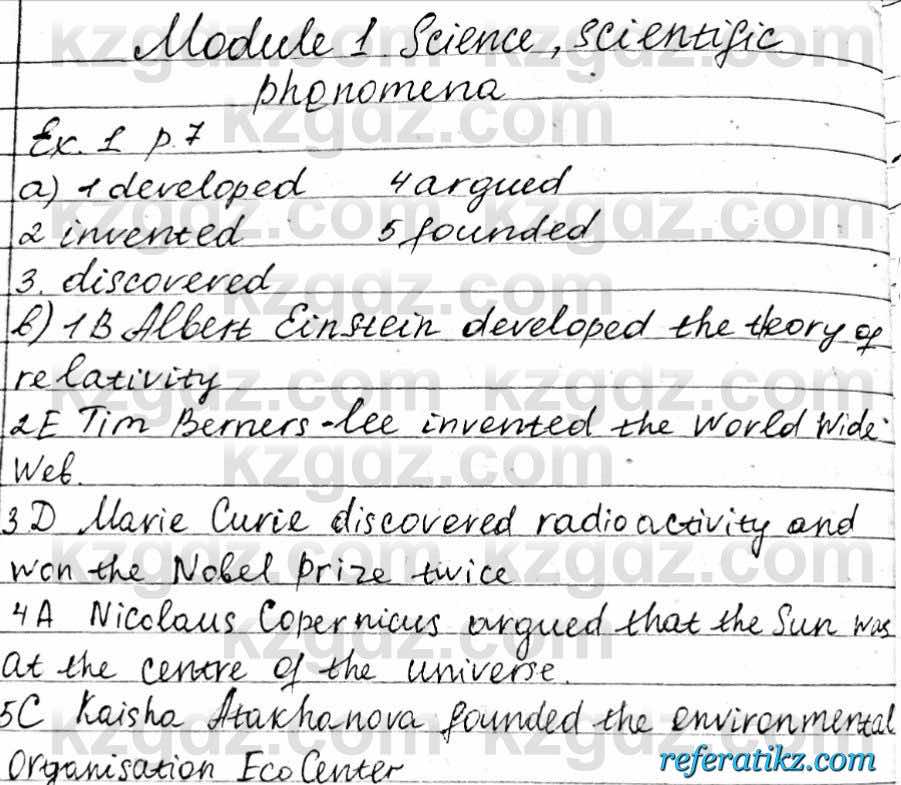 Module 1 Science, scientific
phenomena
Ex. 1 p.7
a) 1 developed 4 argued
2 invented 5 founded
3. discovered
b) 1B Albert Einstein developed the theory of
relativity
2E Tim Berners-Lee invented the World Wide
Web.
3D Marie Curie discovered radioactivity and
won the Nobel Prize twice
4A Nicolaus Copernicus argued that the Sun was
at the centre of the universe.
5C Kaisha Atakhanova founded the environmental
Organisation EcoCenter
kzgdz.com
referatikz.com